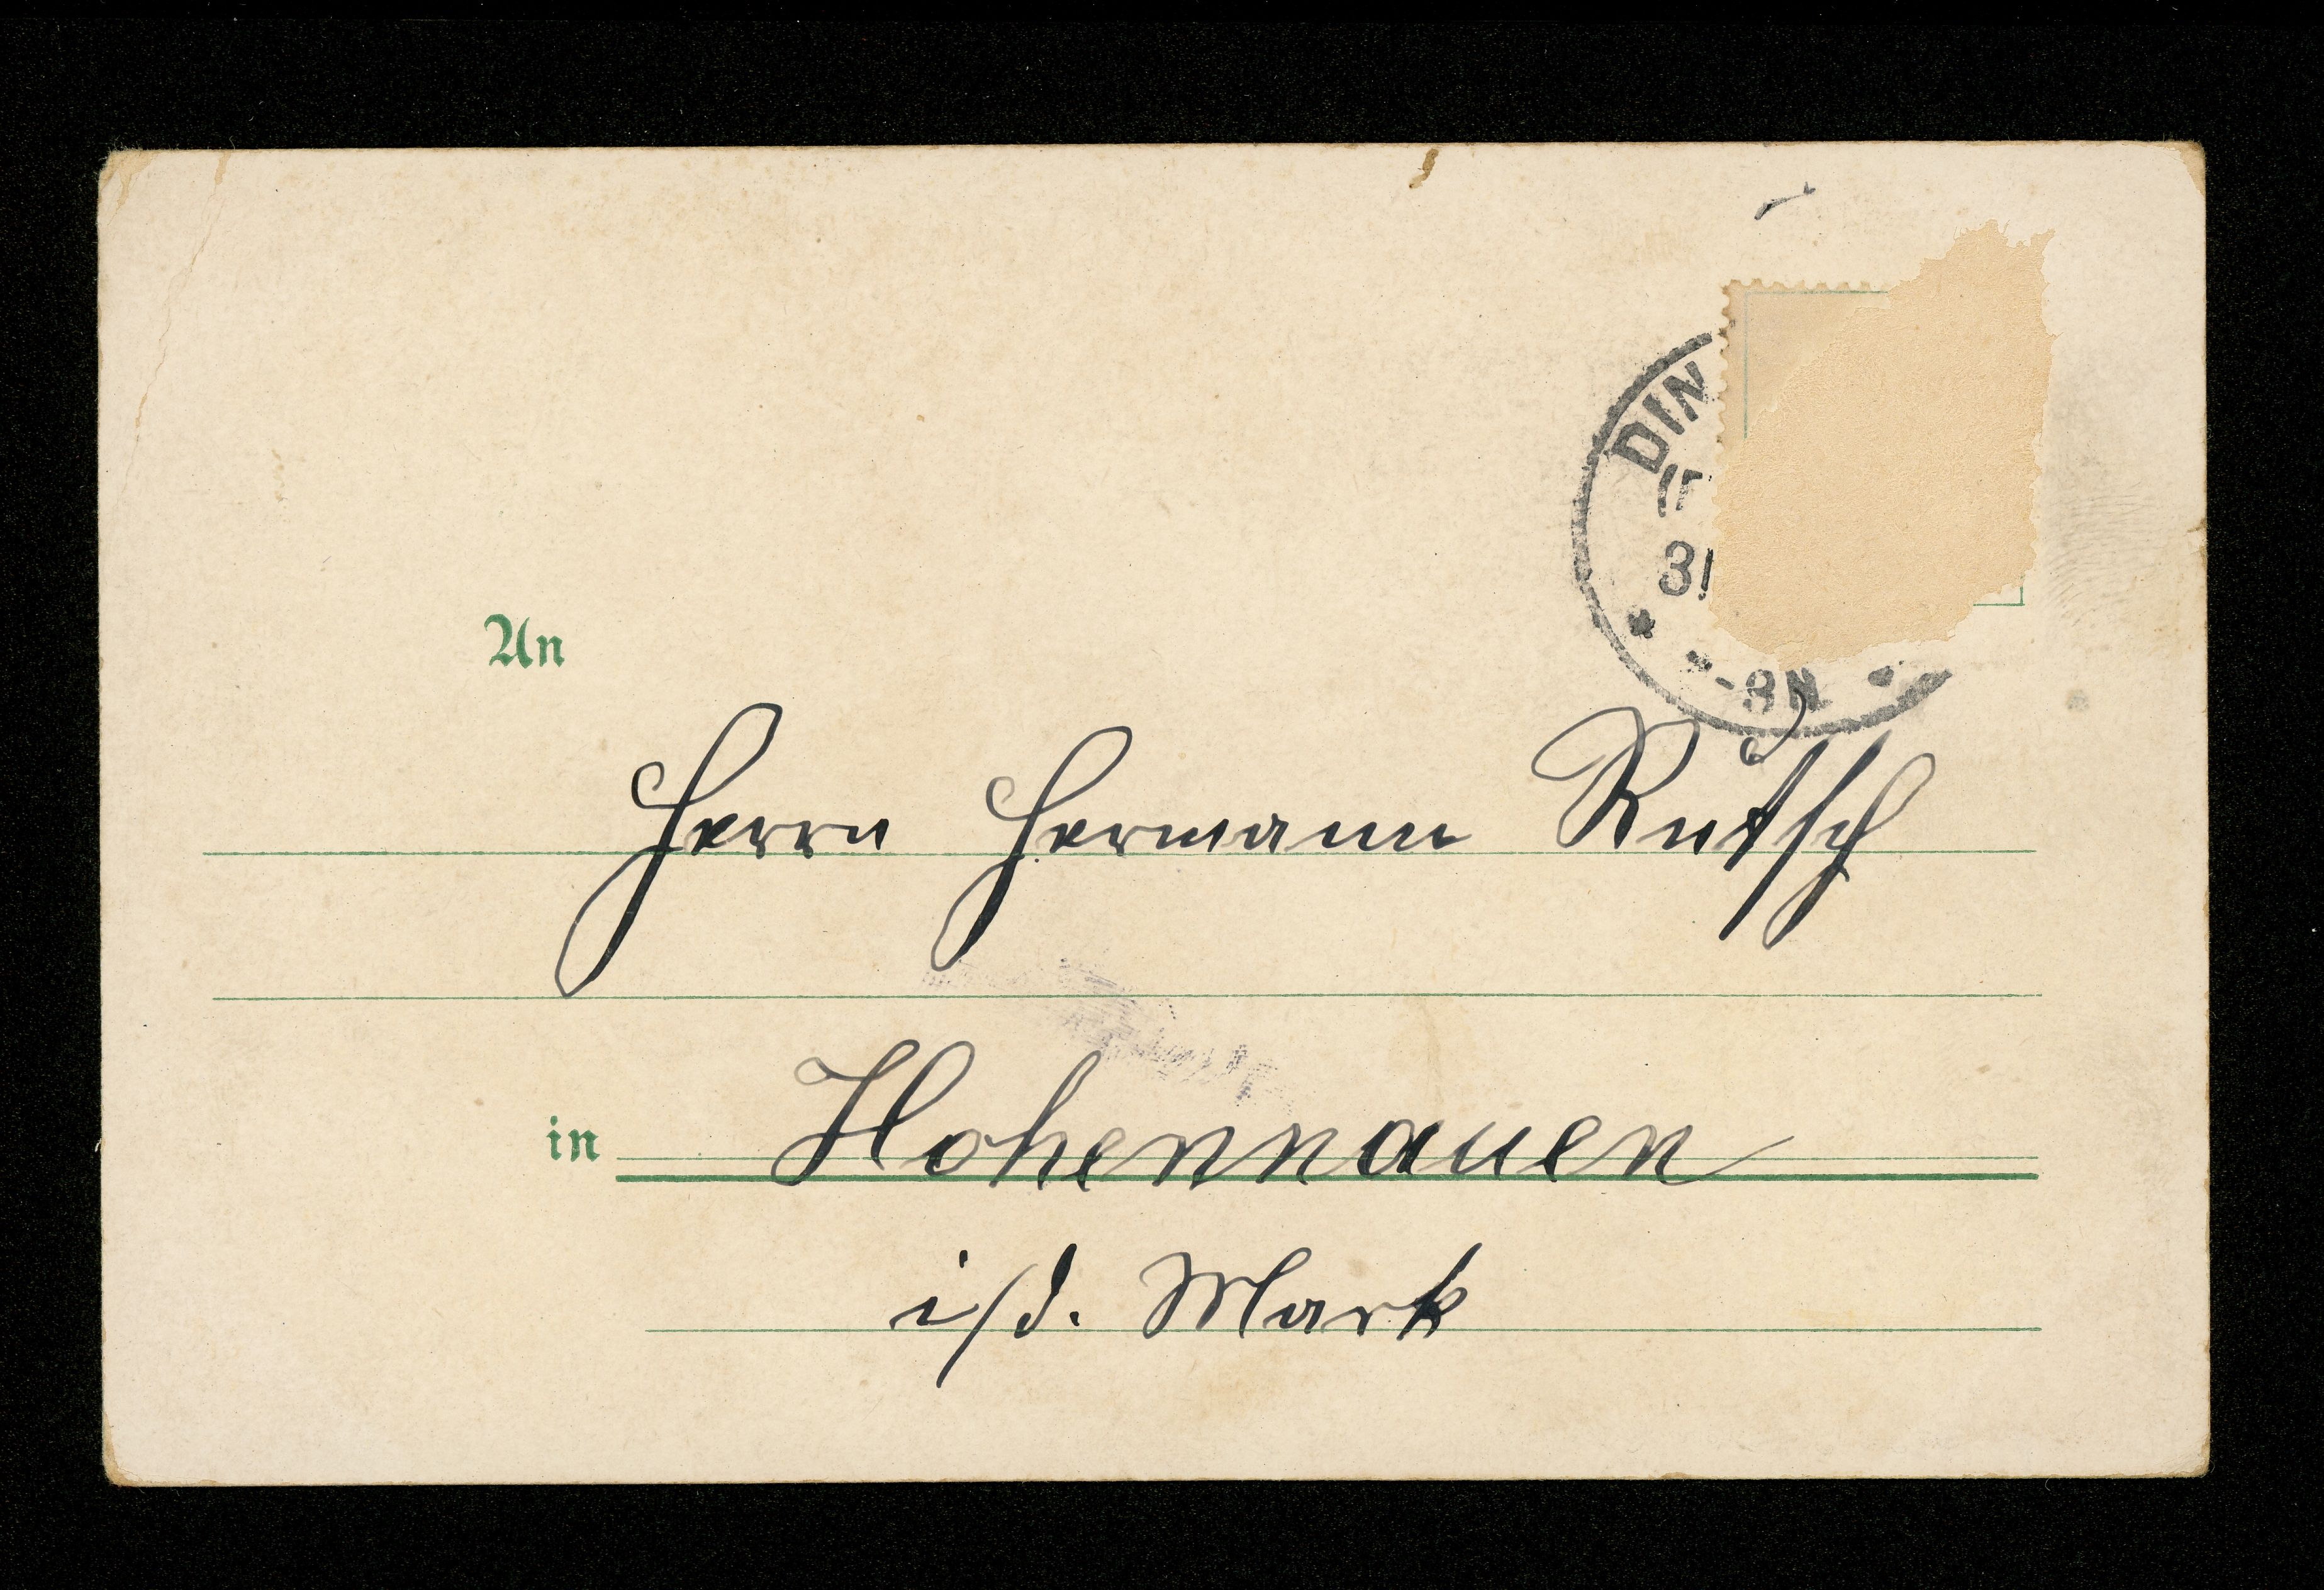 DIN
31
-8N
An
Herrn Hermann Rutsch
in Hohennauen
i/d. Mark